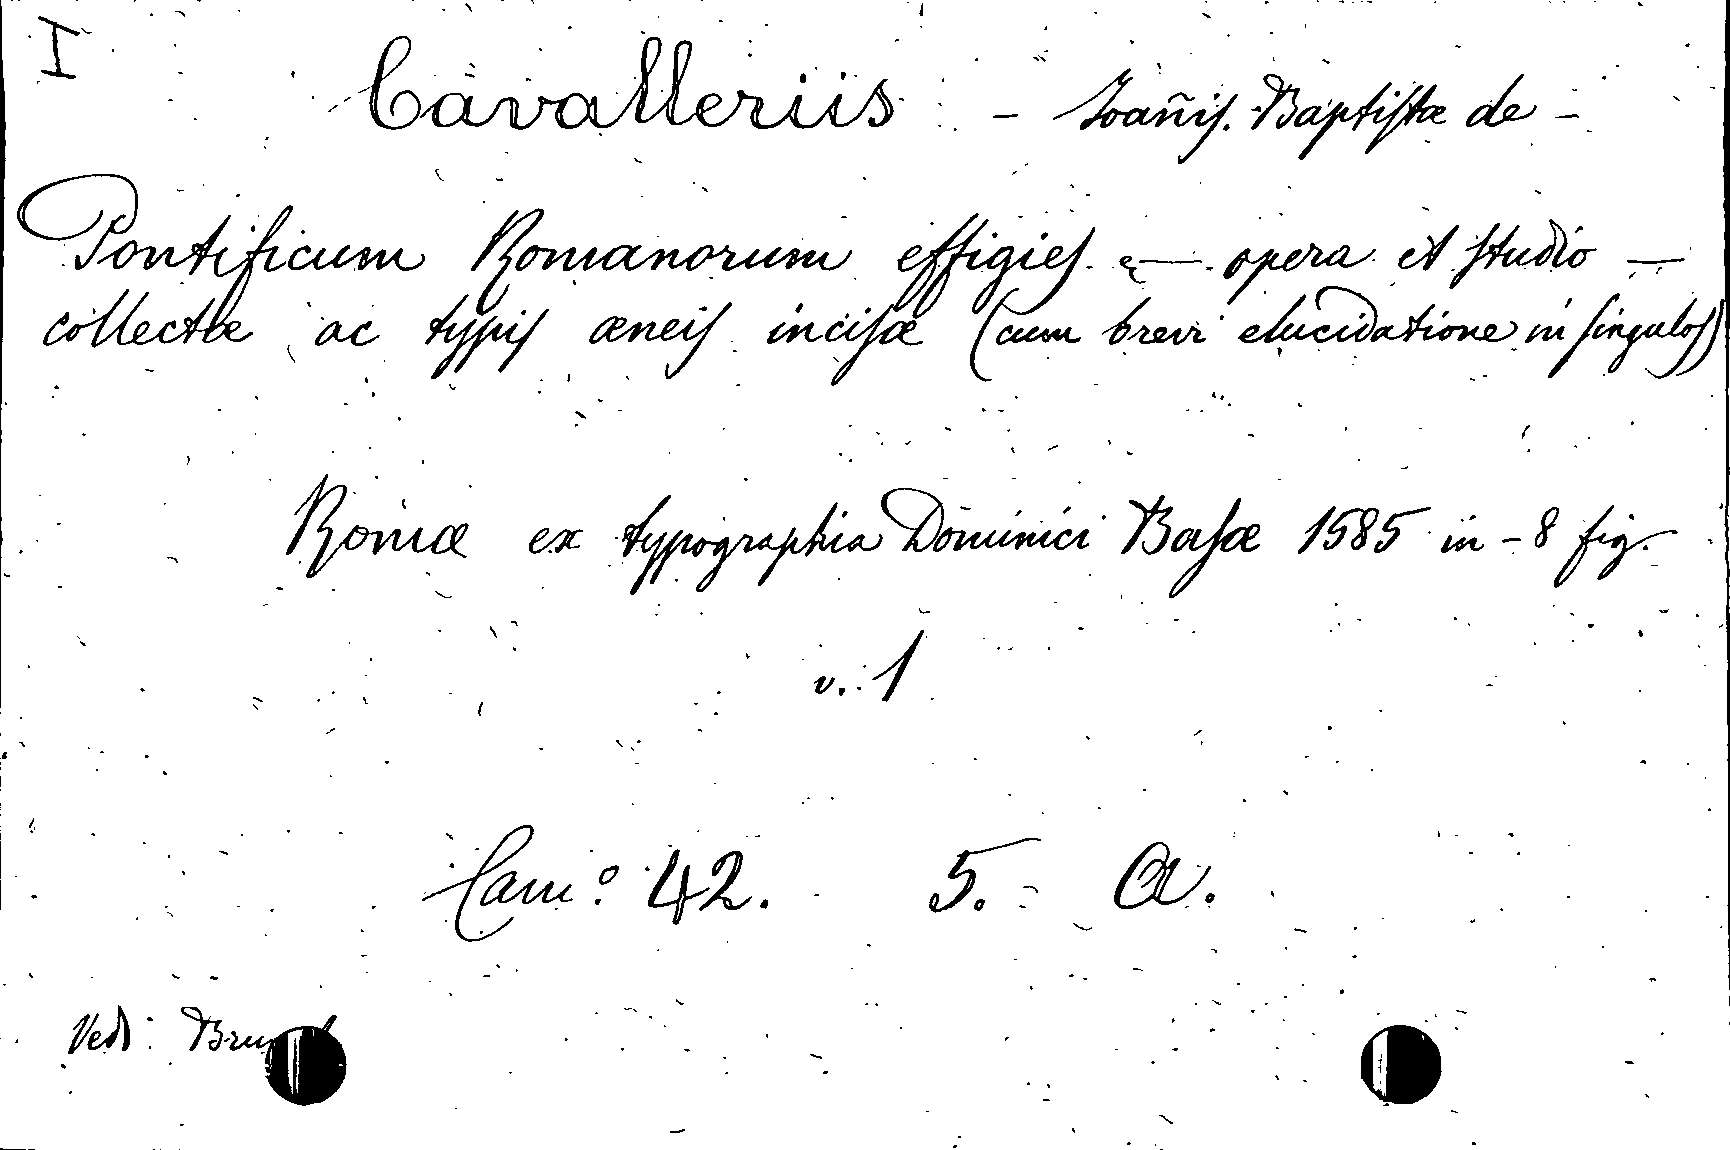 I
Cavalleriis - Joañis. Baptistæ de -
Pontificum Romanorum effigies — opera et studio —
collectæ ac typis æneis incisæ (cum brevi elucidatione in singulos)
Romæ ex typographia Dominici Basæ 1585 in-8 fig.
v. 1
Cam.º 42. 5. A.
Vedi: